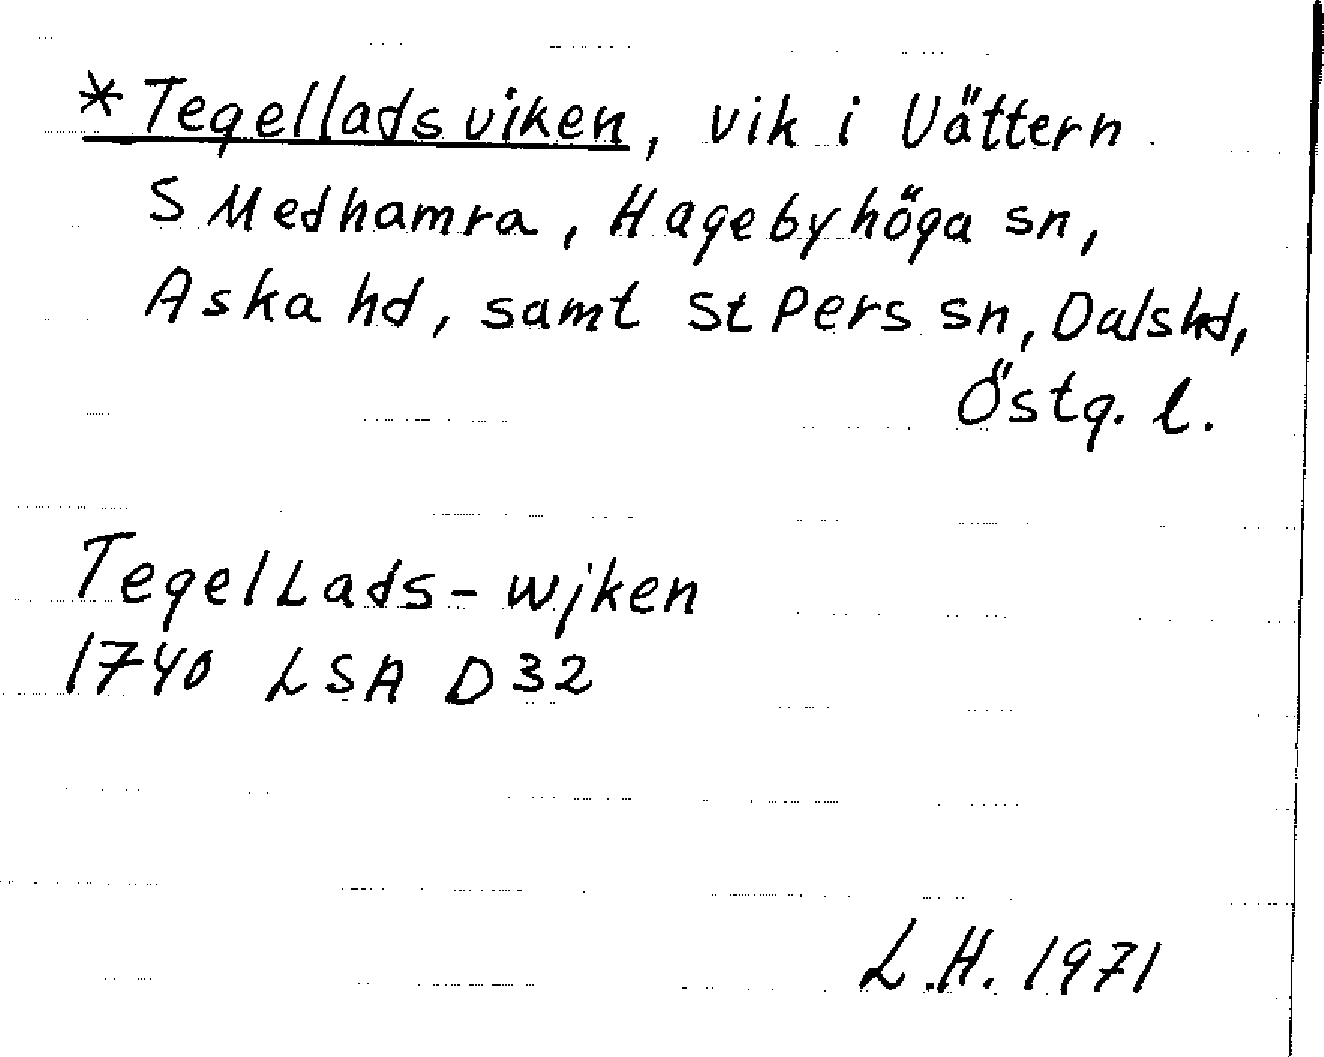 * Tegelladsviken, vik i Vättern
S Medhamra, Hagebyhöga sn,
Aska hd, samt St Pers sn, Dalshd,
Östg. l.
TegelLads-wjken
1740 LSA D32
L.H. 1971